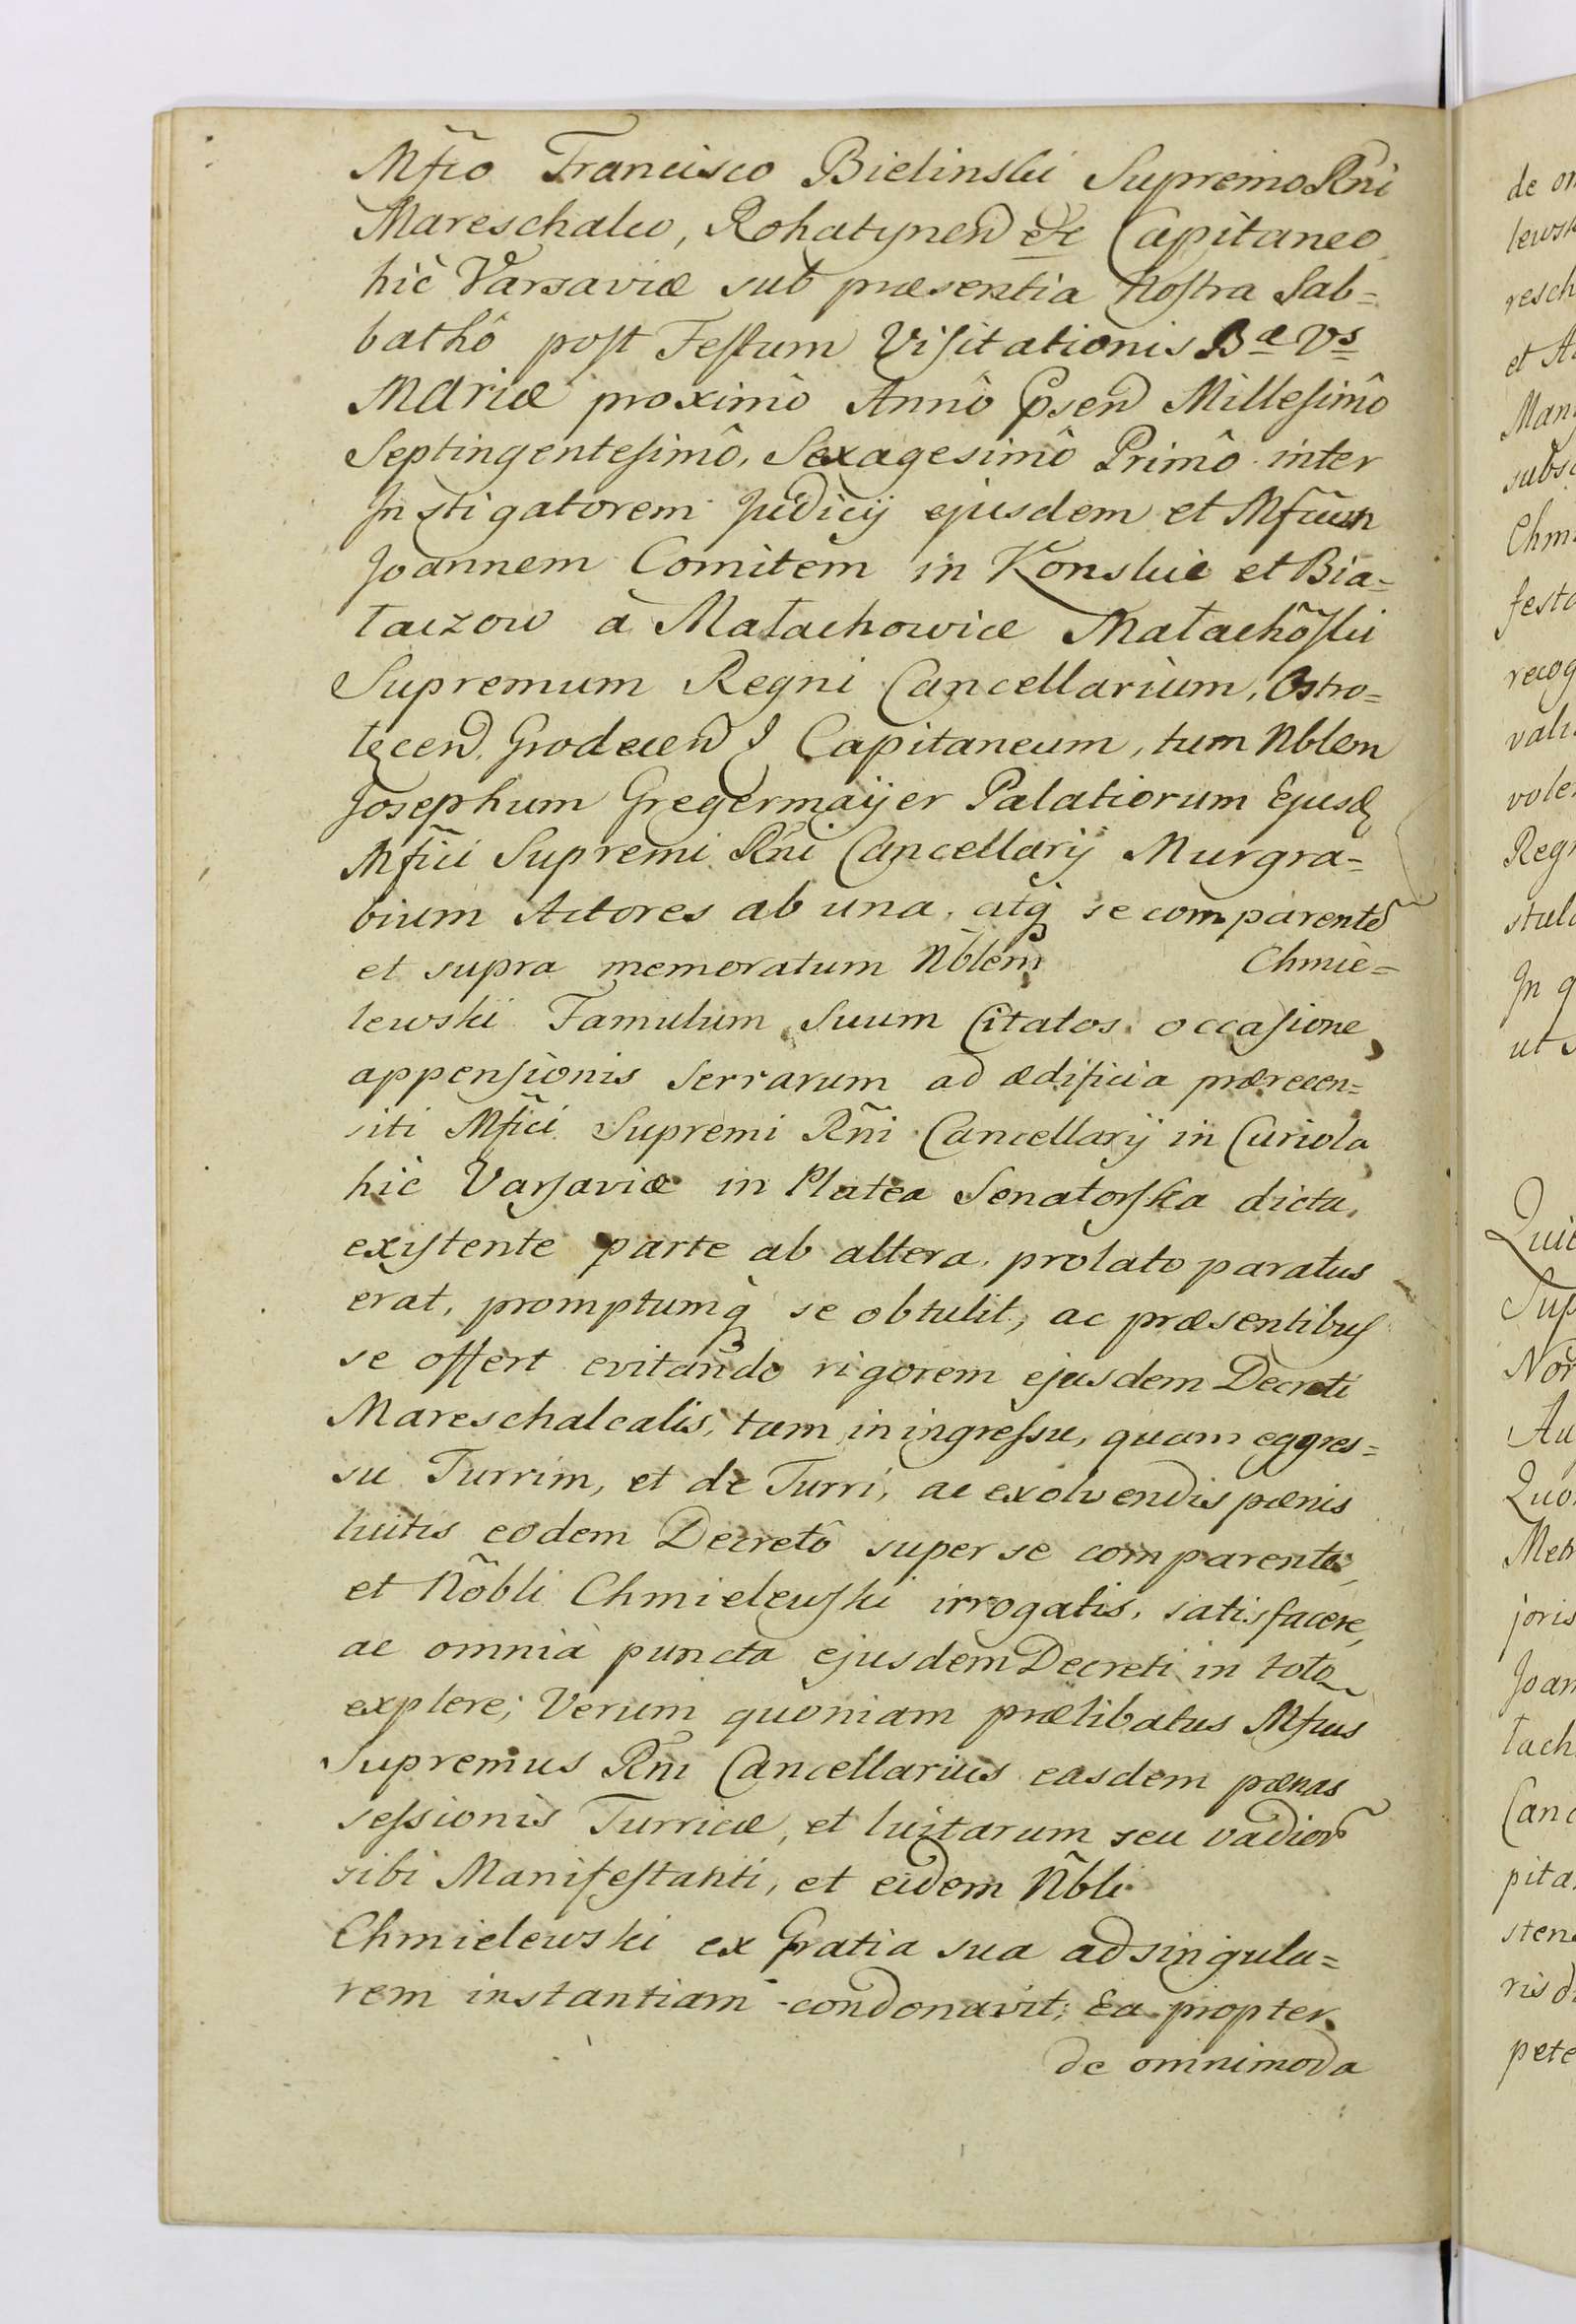 Mfico Francisco Bielinski Supremo Rni
Mareschalco, Rohatynen etc Capitaneo
hic Varsaviæ sub præsentia Nostra Sab=
bathô post Festum Visitationis Bæ Vs
Mariæ proximô Annô Psen Millesimô
Septingentesimô, Sexagesimô Primô inter
Instigatorem Judicij ejusdem et Mficum
Joannem Comitem in Konskie et Bia=
łaczow a Małachowice Małachôski
Supremum Regni Cancellarium, Ostro=
łęcen. Grodecen & Capitaneum, tum Nblem
Josephum Gregermajjer Palatiorum Ejusd
Mfici Supremi Rni Cancellarij Murgra=
bium Actores ab una, atq se comparente
et supra memoratum Nblem Chmie=
lewski Famulum Suum Citatos occasione
appensionis serrarum ad ædificia prærecen=
siti Mfici Supremi Rni Cancellarij in Curiola
hic Varsaviæ in Platea Senatorska dicta,
existente parte ab altera, prolato paratus
erat, promptumq se obtulit, ac præsentibus
se offert evitando rigorem ejusdem Decreti
Mareschalcalis, tam in ingressu, quam eggres=
su Turrim, et de Turri, ac exolvendis pænis
luitis eodem Decretô super se comparente,
et Nobli Chmielewski irrogatis, satisfacere,
ac omnia puncta ejusdem Decreti in toto
explere; Verum quoniam prælibatus Mficus
Supremus Rni Cancellarius easdem pænas
sessionis Turricæ, et luitarum seu vadior
sibi Manifestanti, et eidem Nbli
Chmielewski ex Gratia sua ad singula=
rem instantiam condonavit; Ea propter
de omnimoda